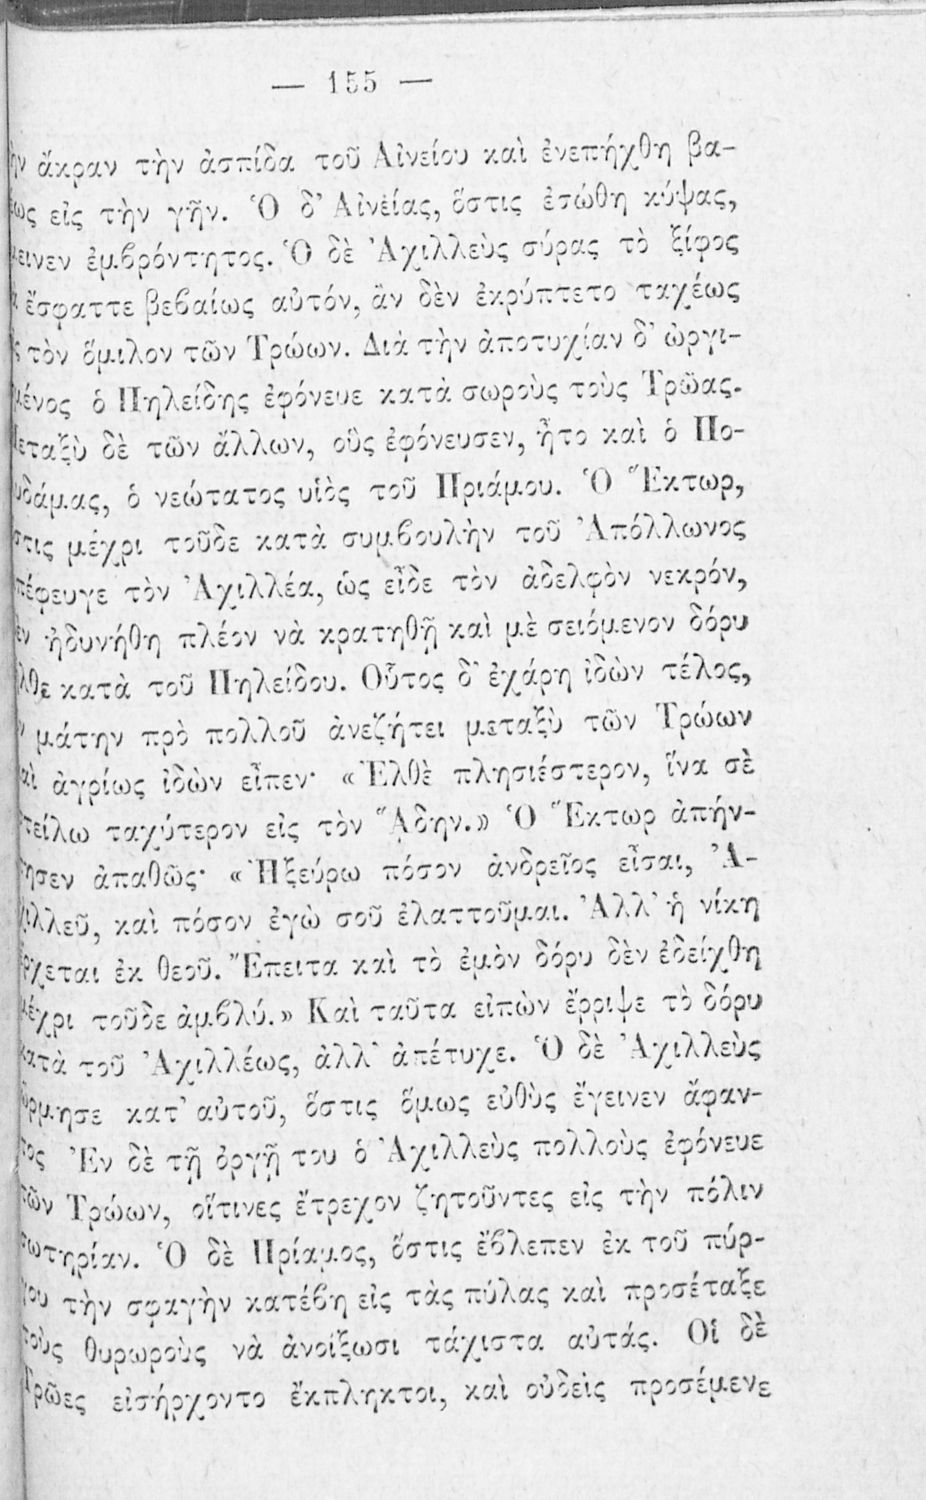 — 155 —
ὴν ἄκραν τὴν ἀσπίδα τοῦ Αἰνείου καὶ ἐνεπήχθη βα-
έως εἰς τὴν γῆν. Ὁ δ' Αἰνείας, ὅστις ἐσώθη κύψας,
μεινεν ἐμβρόντητος. Ὁ δὲ Ἀχιλλεὺς σύρας τὸ ξίφος
ὰ ἔσφαττε βεβαίως αὐτόν, ἂν δὲν ἐκρύπτετο ταχέως
ς τὸν ὅμιλον τῶν Τρώων. Διὰ τὴν ἀποτυχίαν δ' ὠργι-
μένος ὁ Πηλείδης ἐφόνευε κατὰ σωροὺς τοὺς Τρῶας.
Μεταξὺ δὲ τῶν ἄλλων, οὓς ἐφόνευσεν, ἦτο καὶ ὁ Πο-
υδάμας, ὁ νεώτατος υἱὸς τοῦ Πριάμου. Ὁ Ἕκτωρ,
στις μέχρι τοῦδε κατὰ συμβουλὴν τοῦ Ἀπόλλωνος
πέφευγε τὸν Ἀχιλλέα, ὡς εἶδε τὸν ἀδελφὸν νεκρόν,
ὲν ἠδυνήθη πλέον νὰ κρατηθῇ καὶ μὲ σειόμενον δόρυ
λθε κατὰ τοῦ Πηλείδου. Οὗτος δ' ἐχάρη ἰδὼν τέλος,
ν μάτην πρὸ πολλοῦ ἀνεζήτει μεταξὺ τῶν Τρώων
αὶ ἀγρίως ἰδὼν εἶπεν· «Ἐλθὲ πλησιέστερον, ἵνα σὲ
τείλω ταχύτερον εἰς τὸν Ἅδην.» Ὁ Ἕκτωρ ἀπήν-
τησεν ἀπαθῶς· «Ἠξεύρω πόσον ἀνδρεῖος εἶσαι, Ἀ-
χιλλεῦ, καὶ πόσον ἐγὼ σοῦ ἐλαττοῦμαι. Ἀλλ' ἡ νίκη
ρχεται ἐκ θεοῦ. Ἔπειτα καὶ τὸ ἐμὸν δόρυ δὲν ἐδείχθη
μέχρι τοῦδε ἀμβλύ.» Καὶ ταῦτα εἰπὼν ἔρριψε τὸ δόρυ
κατὰ τοῦ Ἀχιλλέως, ἀλλ' ἀπέτυχε. Ὁ δὲ Ἀχιλλεὺς
ὥρμησε κατ' αὐτοῦ, ὅστις ὅμως εὐθὺς ἔγεινεν ἄφαν-
τος Ἐν δὲ τῇ ὀργῇ του ὁ Ἀχιλλεὺς πολλοὺς ἐφόνευε
τῶν Τρώων, οἵτινες ἔτρεχον ζητοῦντες εἰς τὴν πόλιν
σωτηρίαν. Ὁ δὲ Πρίαμος, ὅστις ἔβλεπεν ἐκ τοῦ πύρ-
γου τὴν σφαγὴν κατέβη εἰς τὰς πύλας καὶ προσέταξε
τοὺς θυρωροὺς νὰ ἀνοίξωσι τάχιστα αὐτάς. Οἱ δὲ
Τρῶες εἰσήρχοντο ἔκπληκτοι, καὶ οὐδεὶς προσέμενε